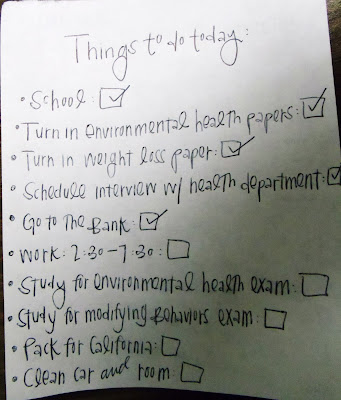 Things to do today:
• School: ☑
• Turn in environmental health papers: ☑
• Turn in weight loss paper: ☑
• Schedule interview w/ health department: ☑
• Go to The Bank: ☑
• Work: 2:30-7:30: ☐
• Study for environmental health exam: ☐
• Study for modifying Behaviors exam: ☐
• Pack for California: ☐
• Clean car and room: ☐